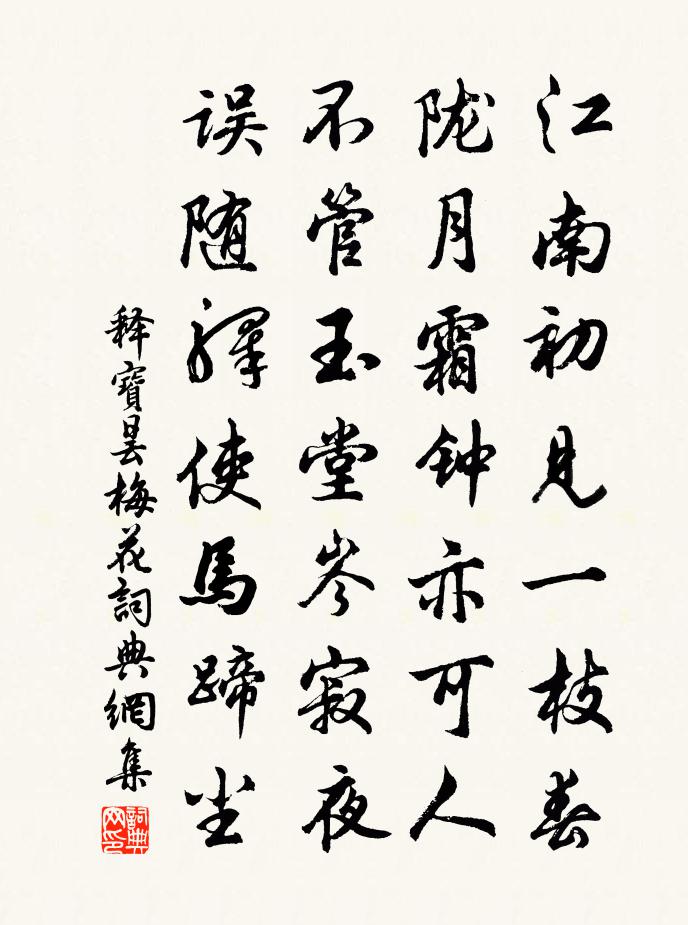 江南初见一枝春
陇月霜钟亦可人
不管玉堂岑寂夜
误随驿使馬蹄尘
释寶昙梅花詞典網集
詞典网印